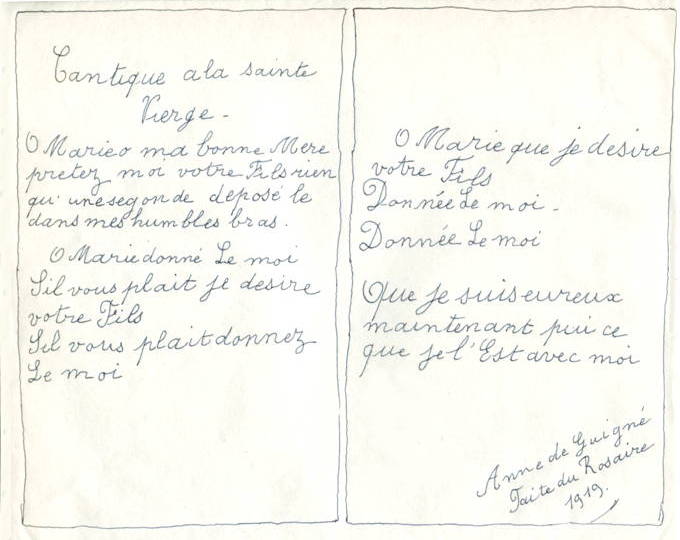 Cantique a la sainte
Vierge -
O Marie o ma bonne Mere
pretez moi votre Fils rien
qu'une segonde deposé le
dans mes humbles bras.
O Marie donné Le moi
Sil vous plait je desire
votre Fils
Sil vous plait donnez
Le moi
O Marie que je desire
votre Fils
Donnée Le moi -
Donnée Le moi
Que je suis eureux
maintenant pui ce
que je l'Est avec moi
Anne de Guigné
Faite du Rosaire
1919.